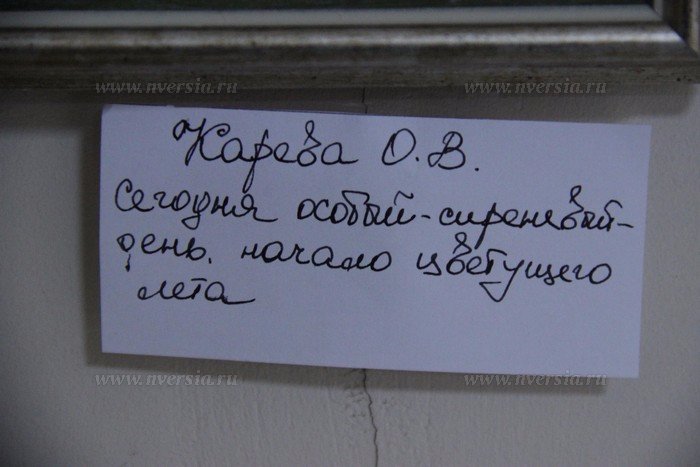 www.nversia.ru www.nversia.ru
Карева О.В.
Сегодня особый-сиреневый-
день. начало цветущего
лета
www.nversia.ru www.nversia.ru